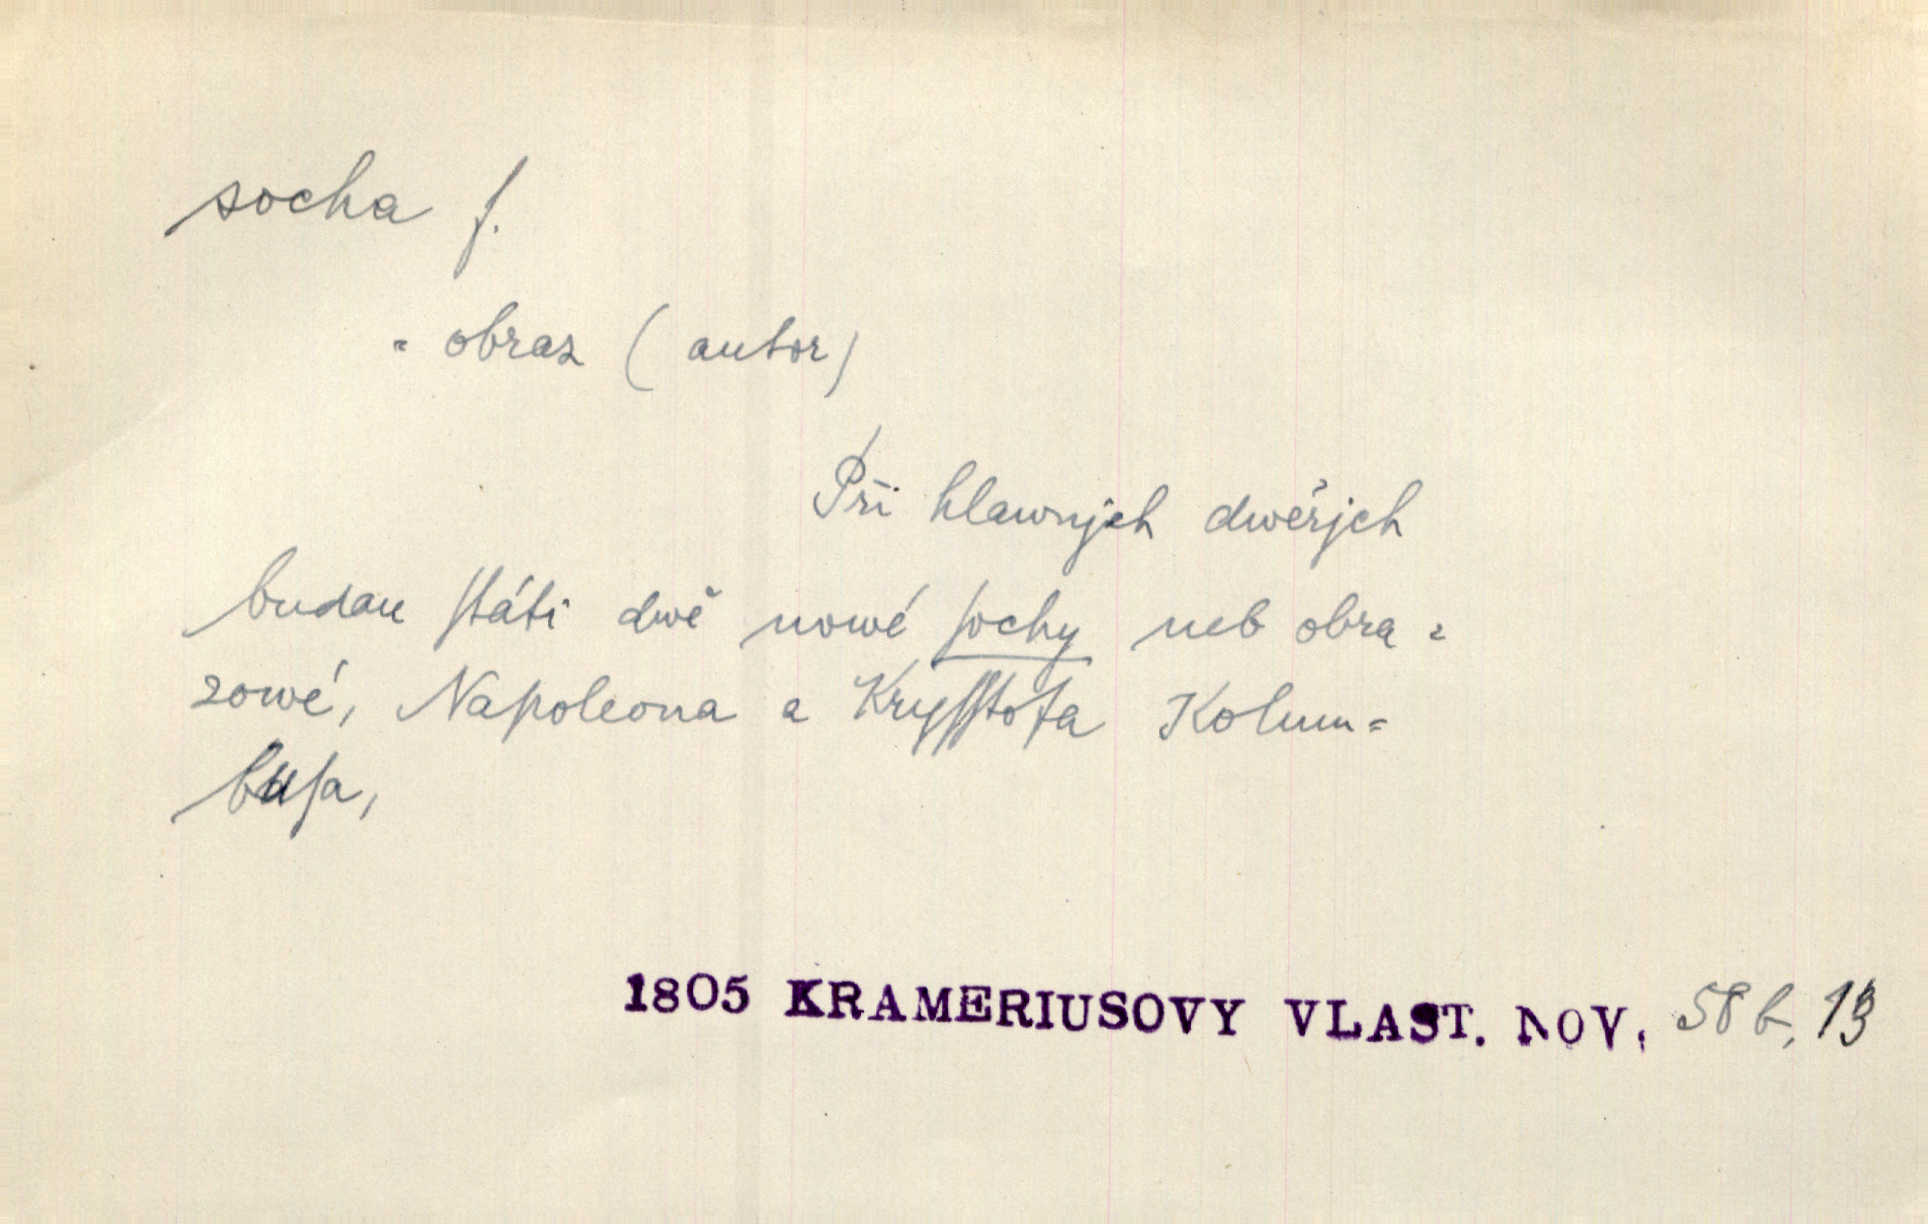 socha f.
= obraz (autor)
Při hlawnjch dwéřjch
budau ſtáti dwě nowé ſochy neb obra=
zowé, Napoleona a Kryſſtofa Kolum=
buſa,
1805 KRAMERIUSOVY VLAST. NOV. 58 b, 13